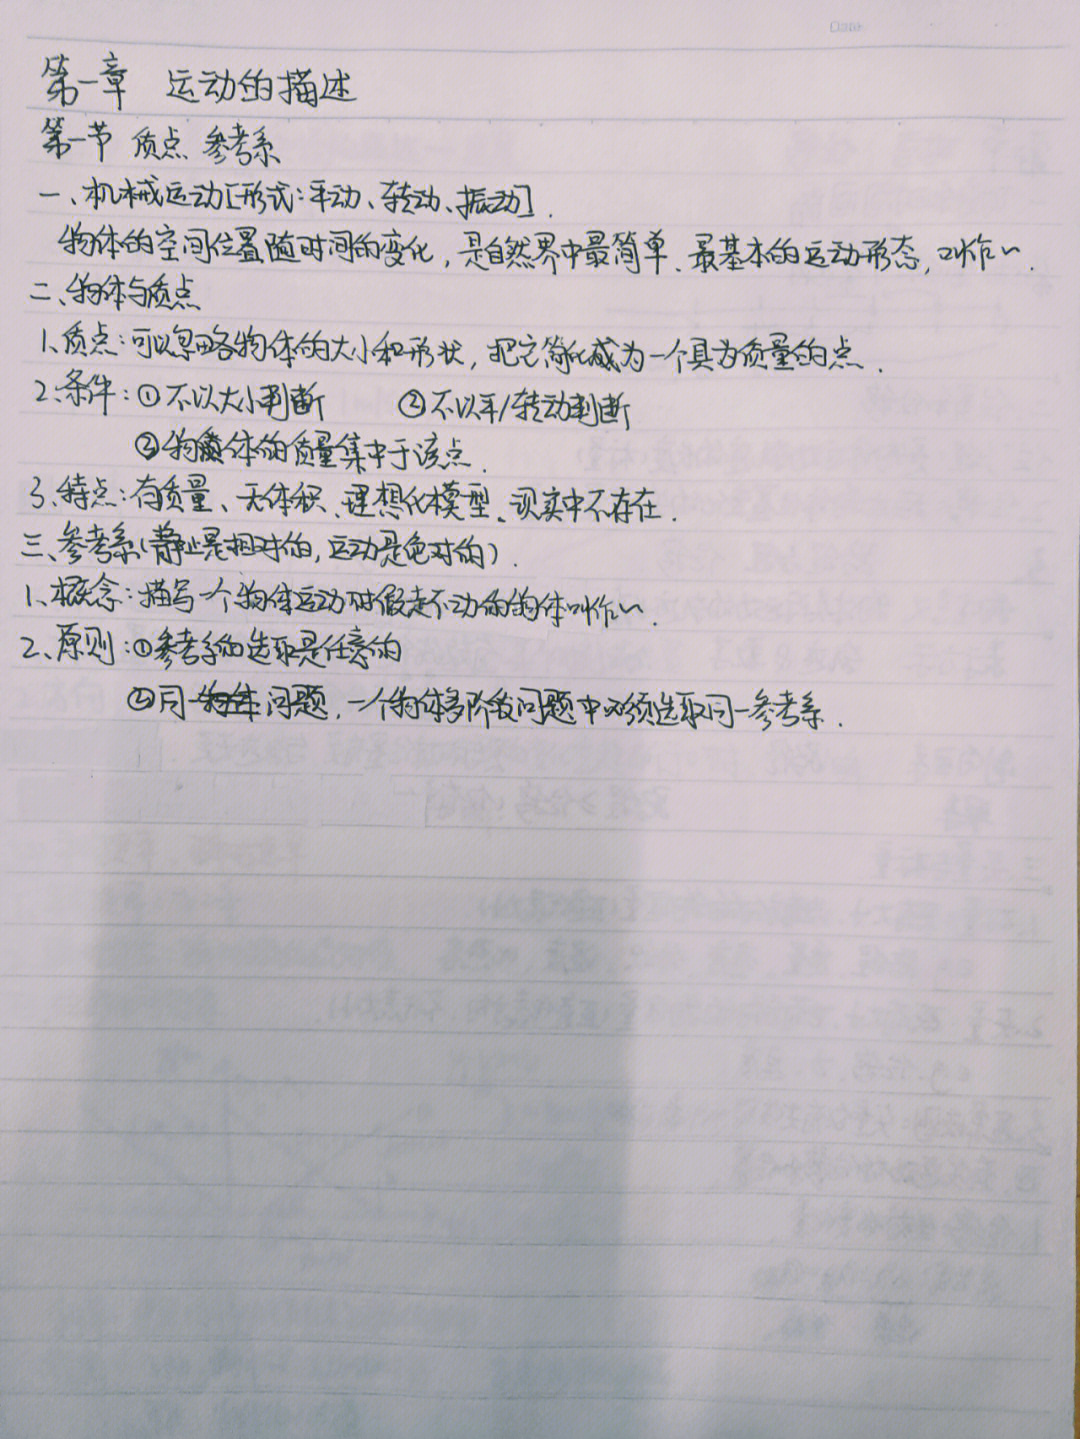 第一章 运动的描述
第一节 质点 参考系
一、机械运动[形式:平动、转动、振动].
物体的空间位置随时间的变化,是自然界中最简单、最基本的运动形态,叫作~.
二、物体与质点
1、质点:可以忽略物体的大小和形状,把它简化成为一个具有质量的点.
2、条件:①不以大小判断 ②不以平/转动判断
③物体的质量集中于该点.
3、特点:有质量、无体积、理想化模型、现实中不存在.
三、参考系(静止是相对的,运动是绝对的).
1、概念:描写一个物体运动时假定不动的物体叫作~.
2、原则:①参考系的选取是任意的
②同一问题,一个物体多阶段问题中必须选取同一参考系.